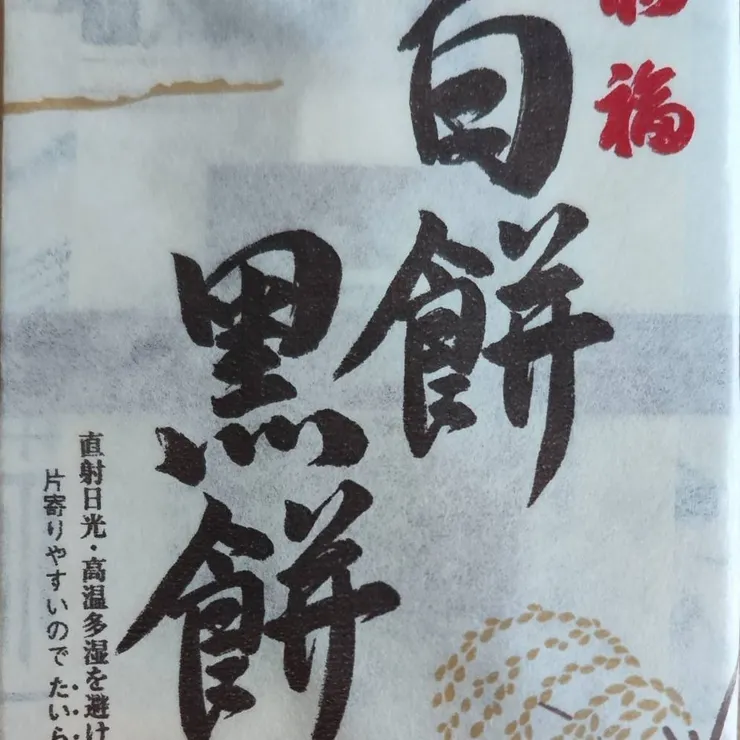 福
白餅
黒餅
直射日光・高温多湿を避け
片寄りやすいのでたいら